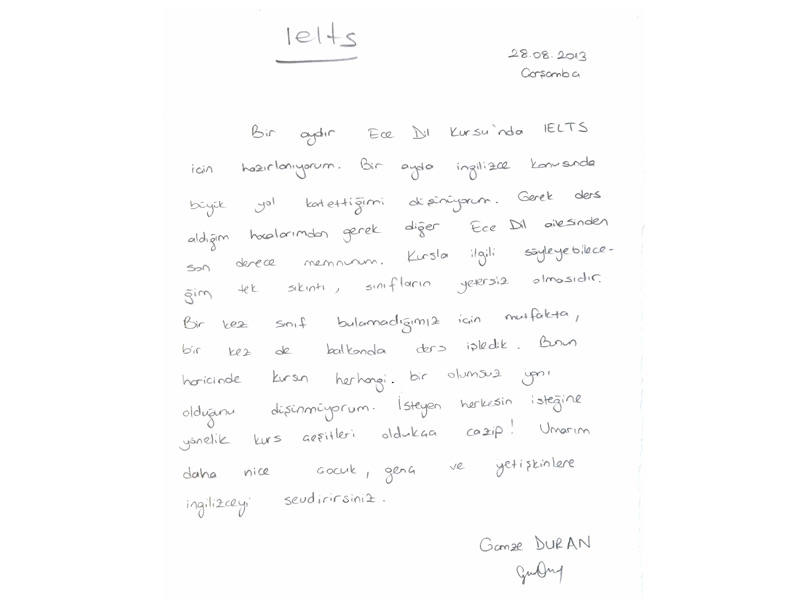 Ielts
28.08.2013
Çarşamba
Bir aydır Ece Dil Kursu'nda IELTS
için hazırlanıyorum. Bir ayda ingilizce konusunda
büyük yol katettiğimi düşünüyorum. Gerek ders
aldığım hocalarımdan gerek diğer Ece Dil ailesinden
son derece memnunum. Kursla ilgili söyleyebilece-
ğim tek sıkıntı, sınıfların yetersiz olmasıdır.
Bir kez sınıf bulamadığımız için mutfakta,
bir kez de balkonda ders işledik. Bunun
haricinde kursun herhangi bir olumsuz yanı
olduğunu düşünmüyorum. İsteyen herkesin isteğine
yönelik kurs çeşitleri oldukça cazip! Umarım
daha nice çocuk, genç ve yetişkinlere
ingilizceyi sevdirirsiniz.
Gamze DURAN